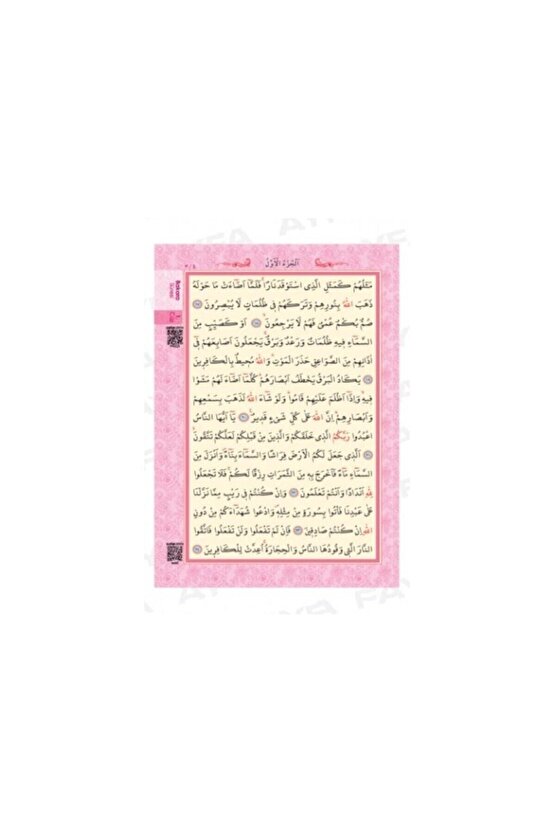 اَلْجُزْءُ الْاَوَّلُ
٣ / ٤
Bakara
Suresi
1
Cüz
مَثَلُهُمْ كَمَثَلِ الَّذِي اسْتَوْقَدَ نَارًا فَلَمَّٓا اَضَٓاءَتْ مَا حَوْلَهُ
ذَهَبَ اللّٰهُ بِنُورِهِمْ وَتَرَكَهُمْ فِي ظُلُمَاتٍ لَا يُبْصِرُونَ ﴿١٧﴾
صُمٌّ بُكْمٌ عُمْيٌ فَهُمْ لَا يَرْجِعُونَ ﴿١٨﴾ اَوْ كَصَيِّبٍ مِنَ
السَّمَٓاءِ فِيهِ ظُلُمَاتٌ وَرَعْدٌ وَبَرْقٌ يَجْعَلُونَ اَصَابِعَهُمْ فِٓي
اٰذَانِهِمْ مِنَ الصَّوَاعِقِ حَذَرَ الْمَوْتِ وَاللّٰهُ مُحِيطٌ بِالْكَافِرِينَ
﴿١٩﴾ يَكَادُ الْبَرْقُ يَخْطَفُ اَبْصَارَهُمْ كُلَّمَٓا اَضَٓاءَ لَهُمْ مَشَوْا
فِيهِ وَاِذَٓا اَظْلَمَ عَلَيْهِمْ قَامُوا وَلَوْ شَٓاءَ اللّٰهُ لَذَهَبَ بِسَمْعِهِمْ
وَاَبْصَارِهِمْ اِنَّ اللّٰهَ عَلٰى كُلِّ شَيْءٍ قَدِيرٌ ﴿٢٠﴾ يَٓا اَيُّهَا النَّاسُ
اعْبُدُوا رَبَّكُمُ الَّذِي خَلَقَكُمْ وَالَّذِينَ مِنْ قَبْلِكُمْ لَعَلَّكُمْ تَتَّقُونَ
﴿٢١﴾ اَلَّذِي جَعَلَ لَكُمُ الْاَرْضَ فِرَاشًا وَالسَّمَٓاءَ بِنَٓاءً وَاَنْزَلَ مِنَ
السَّمَٓاءِ مَٓاءً فَاَخْرَجَ بِهِ مِنَ الثَّمَرَاتِ رِزْقًا لَكُمْ فَلَا تَجْعَلُوا
لِلّٰهِ اَنْدَادًا وَاَنْتُمْ تَعْلَمُونَ ﴿٢٢﴾ وَاِنْ كُنْتُمْ فِي رَيْبٍ مِمَّا نَزَّلْنَا
عَلٰى عَبْدِنَا فَأْتُوا بِسُورَةٍ مِنْ مِثْلِهِ وَادْعُوا شُهَدَٓاءَكُمْ مِنْ دُونِ
اللّٰهِ اِنْ كُنْتُمْ صَادِقِينَ ﴿٢٣﴾ فَاِنْ لَمْ تَفْعَلُوا وَلَنْ تَفْعَلُوا فَاتَّقُوا
النَّارَ الَّتِي وَقُودُهَا النَّاسُ وَالْحِجَارَةُ اُعِدَّتْ لِلْكَافِرِينَ ﴿٢٤﴾